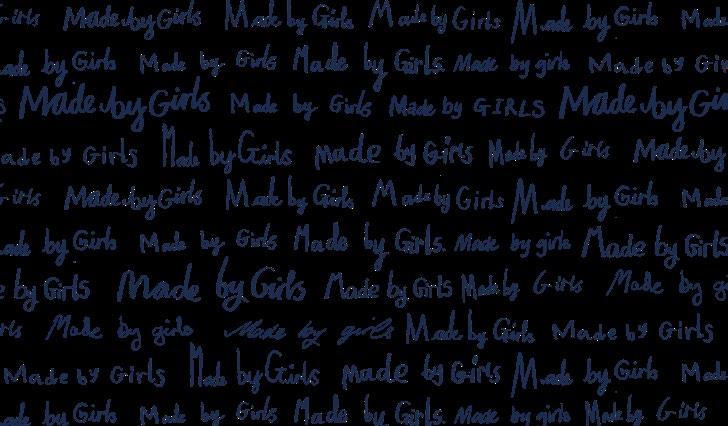 Girls Made by Girls Made by Girls Made by Girls Made by Girls Made
Made by Girls Made by Girls Made by Girls. Made by girls Made by Girls
Made by Girls Made by Girls Made by GIRLS Made by Girls
Made by Girls Made by Girls Made by Girls Made by Girls Made by
Girls Made by Girls Made by Girls Made by Girls Made by Girls Made
Made by Girls Made by Girls Made by Girls. Made by girls Made by Girls
by Girls Made by Girls Made by Girls Made by Girls Made by g
Girls Made by girls Made by girls Made by Girls Made by Girls
Made by Girls Made by Girls Made by Girls Made by Girls Made
Made by Girls Made by Girls Made by Girls. Made by girls Made by Girls